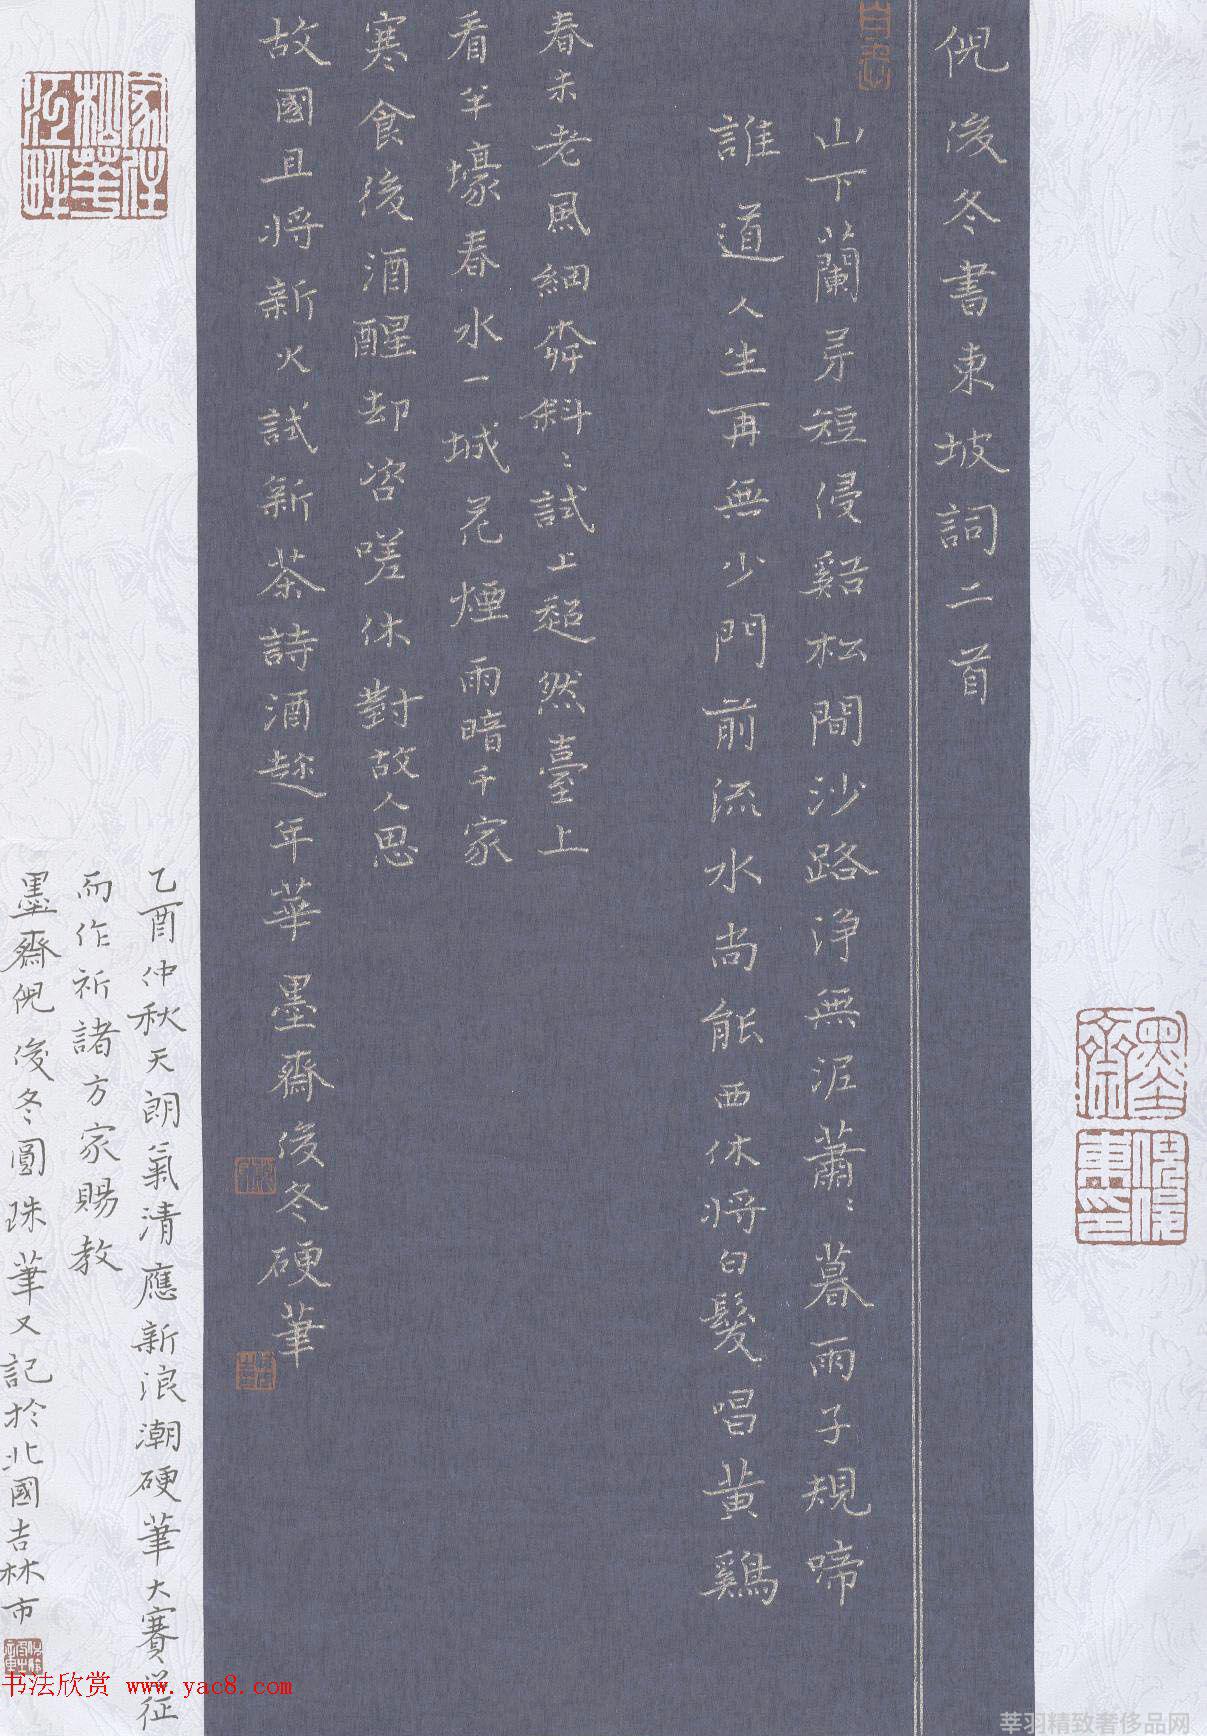 倪俊冬書東坡詞二首
山下蘭芽短侵谿松間沙路淨無泥蕭〻暮雨子規啼
誰道人生再無少門前流水尚能西休將白髮唱黄鷄
春未老風細柳斜〻試上超然臺上
看半壕春水一城花煙雨暗千家
寒食後酒醒却咨嗟休對故人思
故國且將新火試新茶詩酒趂年華 墨齋俊冬硬筆
乙酉仲秋天朗氣清應新浪潮硬筆大賽之征
而作祈諸方家賜教
墨齋倪俊冬圓珠筆又記於北國吉林市
家住松花江畔
墨齋
书法欣赏 www.yac8.com
莘羽精致奢侈品网